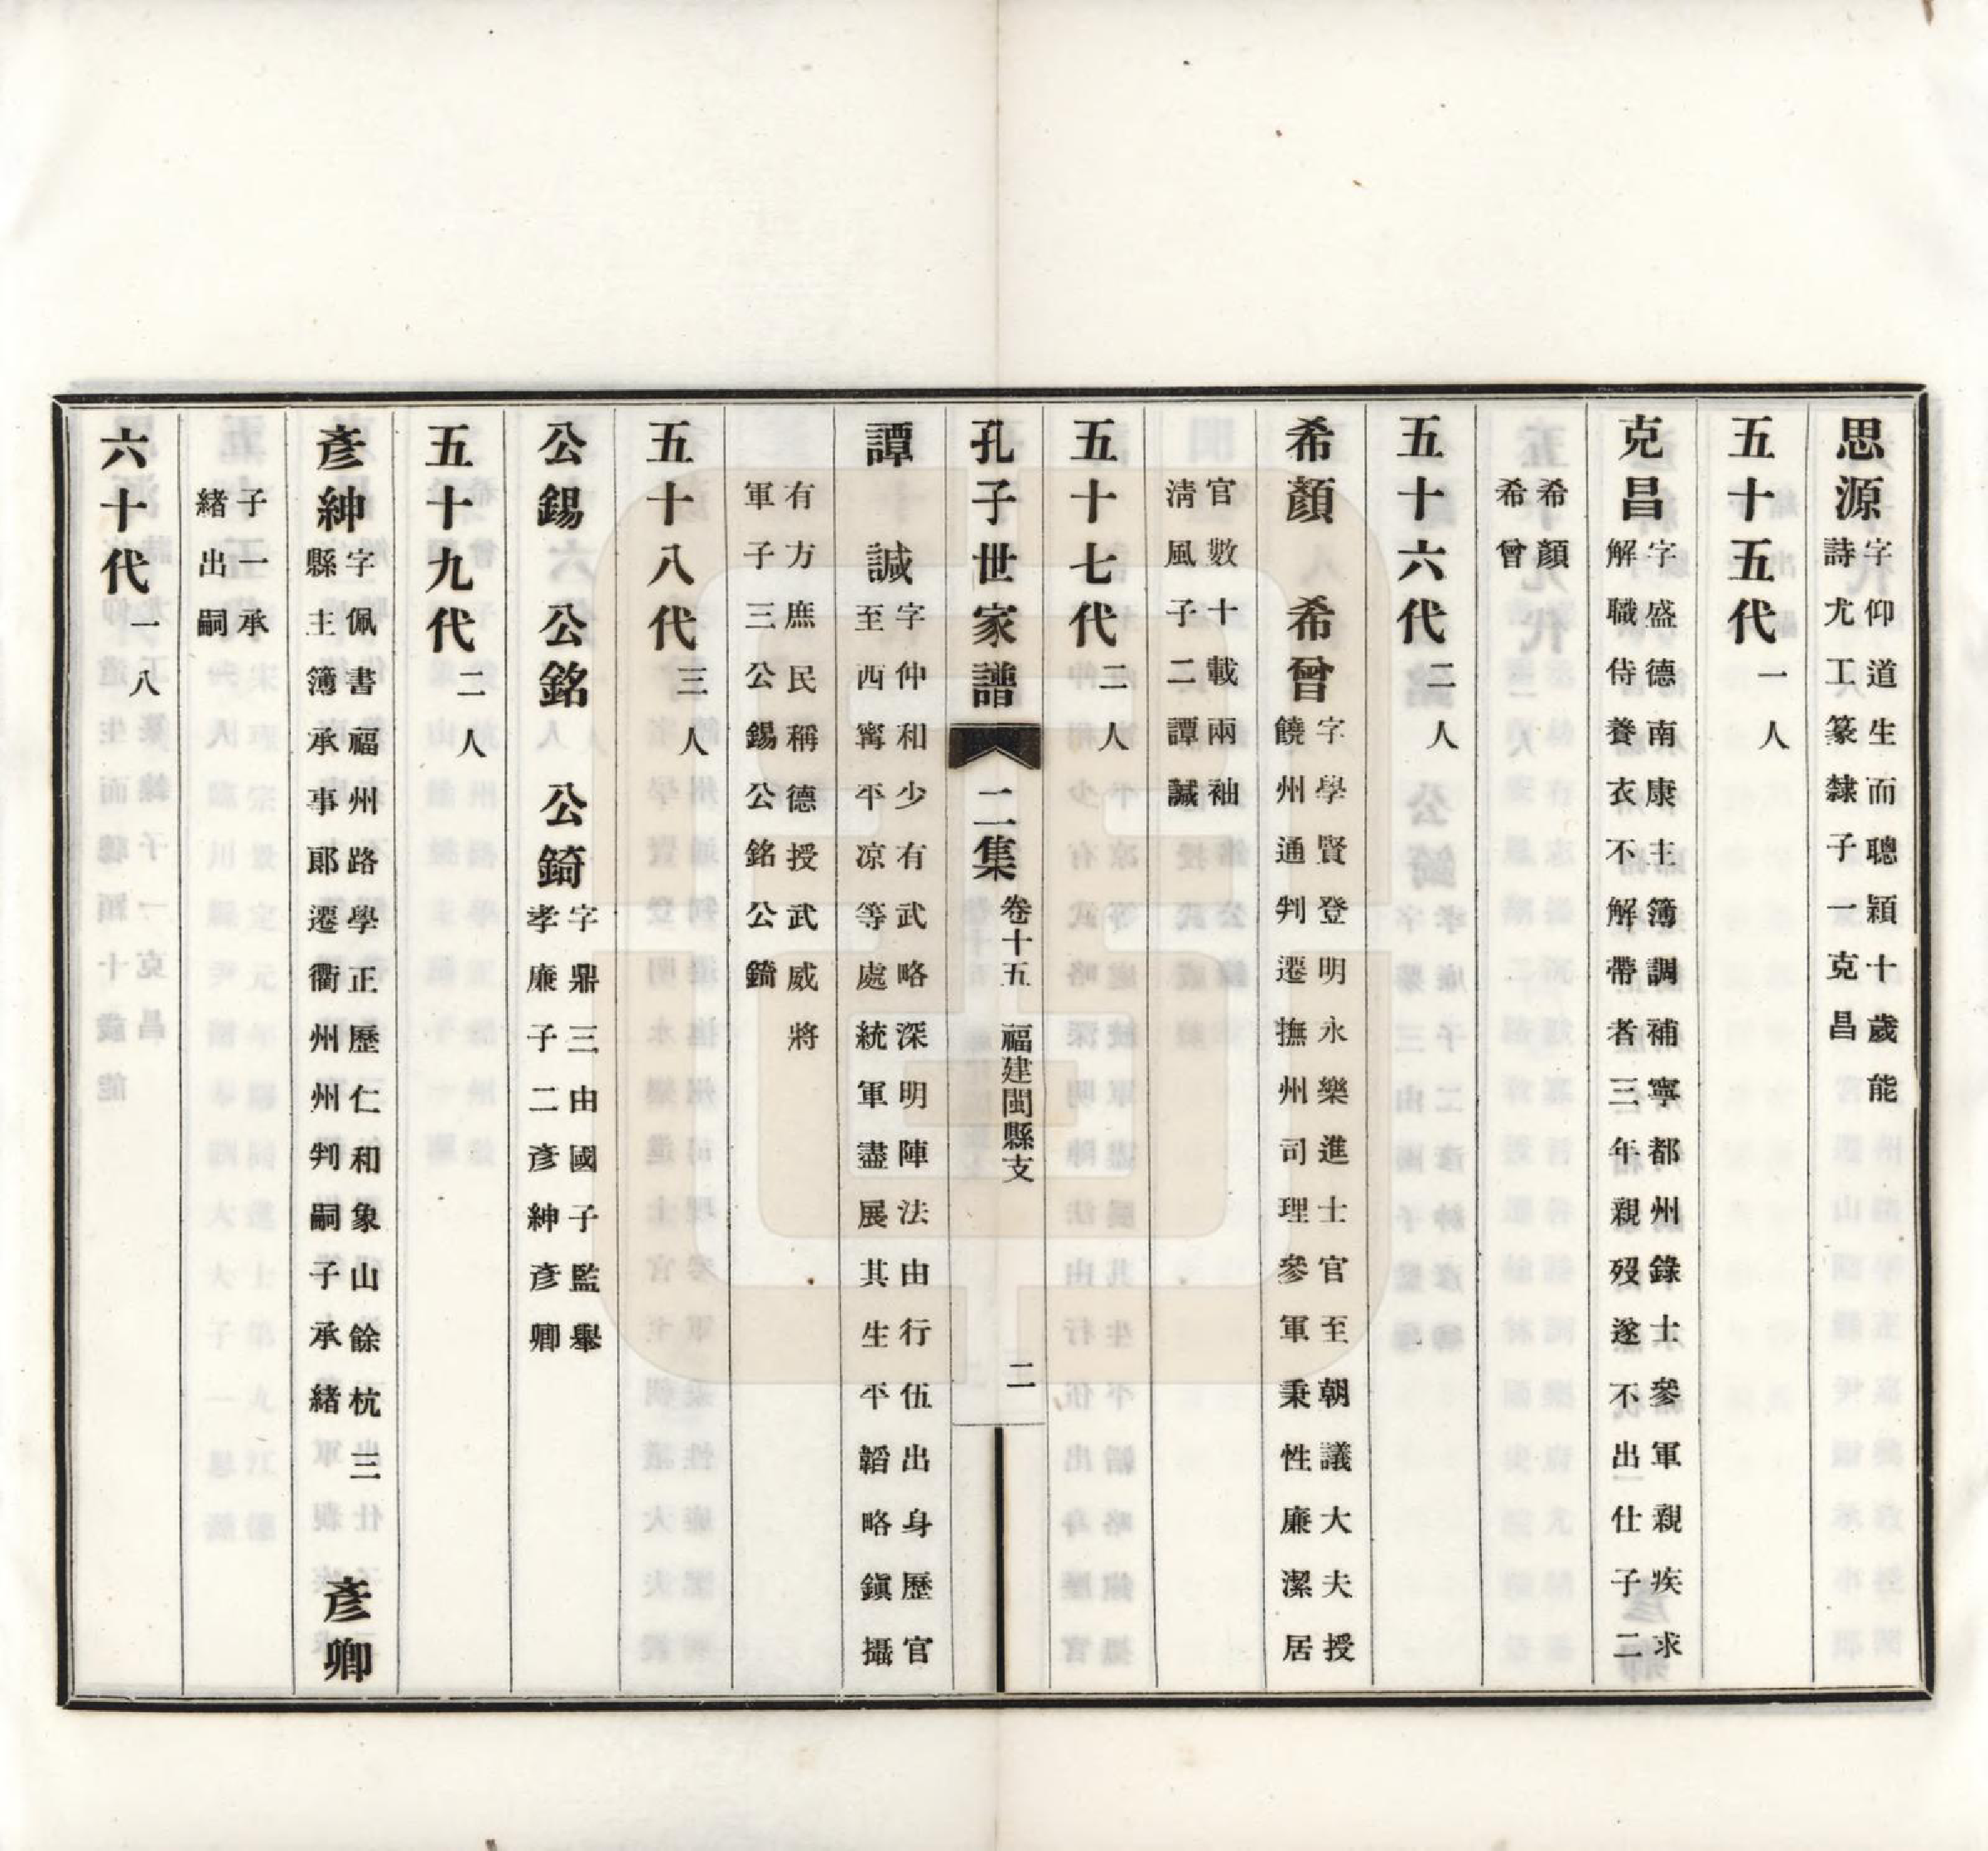 思源字仰道生而聰穎十歲能
詩尤工篆隸子一克昌
五十五代一人
克昌字盛德南康主簿調補寧都州錄士參軍親疾求
解職侍養衣不解帶者三年親歿遂不出仕子二
希顏
希曾
五十六代二人
希顏 希曾字學賢登明永樂進士官至朝議大夫授
饒州通判遷撫州司理參軍秉性廉潔居
官數十載兩袖
淸風子二譚諴
五十七代二人
孔子世家譜 二集 卷十五 福建閩縣支 二
譚 諴字仲和少有武略深明陣法由行伍出身歷官
至西寗平凉等處統軍盡展其生平韜略鎭攝
有方庶民稱德授武威將
軍子三公錫公銘公錡
五十八代三人
公錫 公銘 公錡字鼎三由國子監舉
孝廉子二彥紳彥卿
五十九代二人
彥紳字佩書福州路學正歷仁和象山餘杭三
縣主簿承事郞遷衢州州判嗣子承緒
彥卿
子一承
緒出嗣
六十代一人